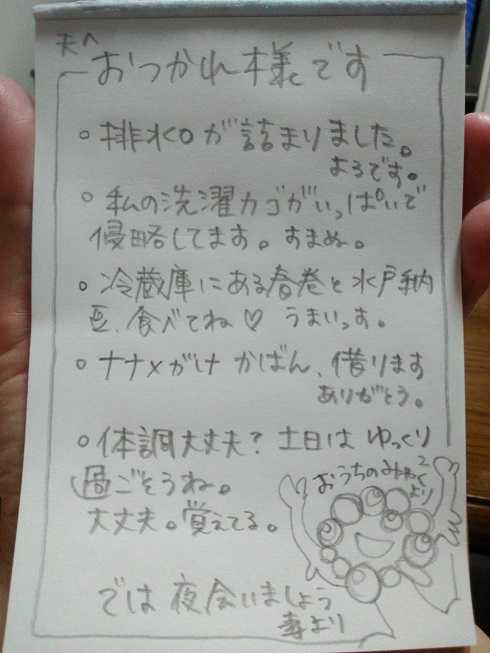 夫へ
おつかれ様です
○排水口が詰まりました。
よろです。
○私の洗濯カゴがいっぱいで
侵略してます。すまぬ。
○冷蔵庫にある春巻と水戸納
豆、食べてね♡ うまいっす。
○ナナメがけ かばん、借ります
ありがとう。
○体調大丈夫？土日は ゆっくり
過ごそうね。
大丈夫。覚えてる。
おうちのみゃく2
より
では 夜会いましょう
妻より